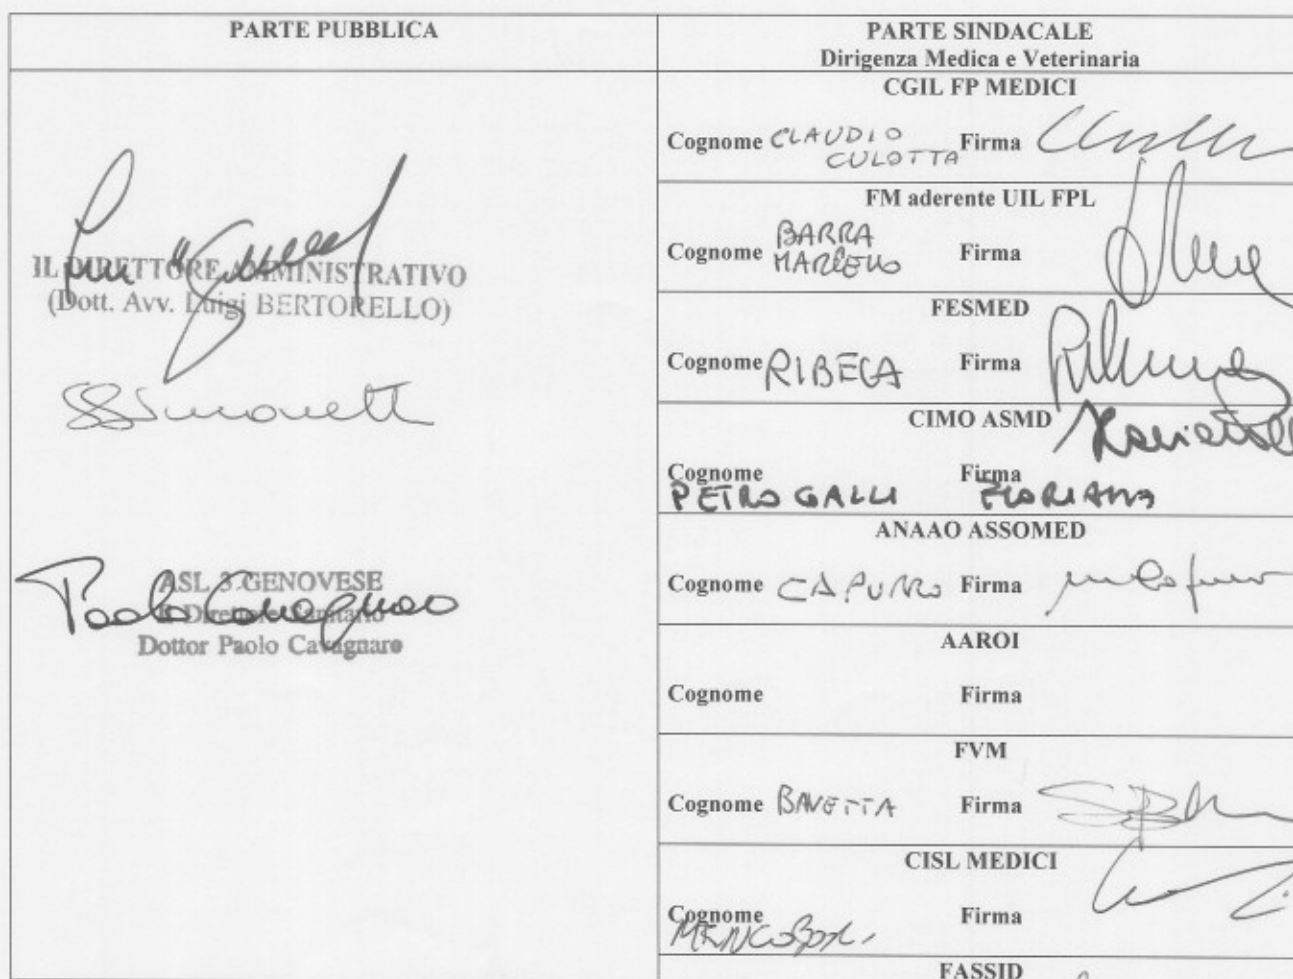 PARTE PUBBLICA
IL DIRETTORE AMMINISTRATIVO
(Dott. Avv. Luigi BERTORELLO)
SSimonetti
ASL 3 GENOVESE
Il Direttore Sanitario
Dottor Paolo Cavagnaro
Paolo Cavagnaro
PARTE SINDACALE
Dirigenza Medica e Veterinaria
CGIL FP MEDICI
Cognome CLAUDIO CULOTTA Firma
FM aderente UIL FPL
Cognome BARRA MARCELLO Firma
FESMED
Cognome RIBECA Firma
CIMO ASMD
Cognome Firma
PETROGALLI FLORIANA
ANAAO ASSOMED
Cognome CAPURRO Firma
AAROI
Cognome Firma
FVM
Cognome BAVETTA Firma
CISL MEDICI
Cognome Firma
FASSID